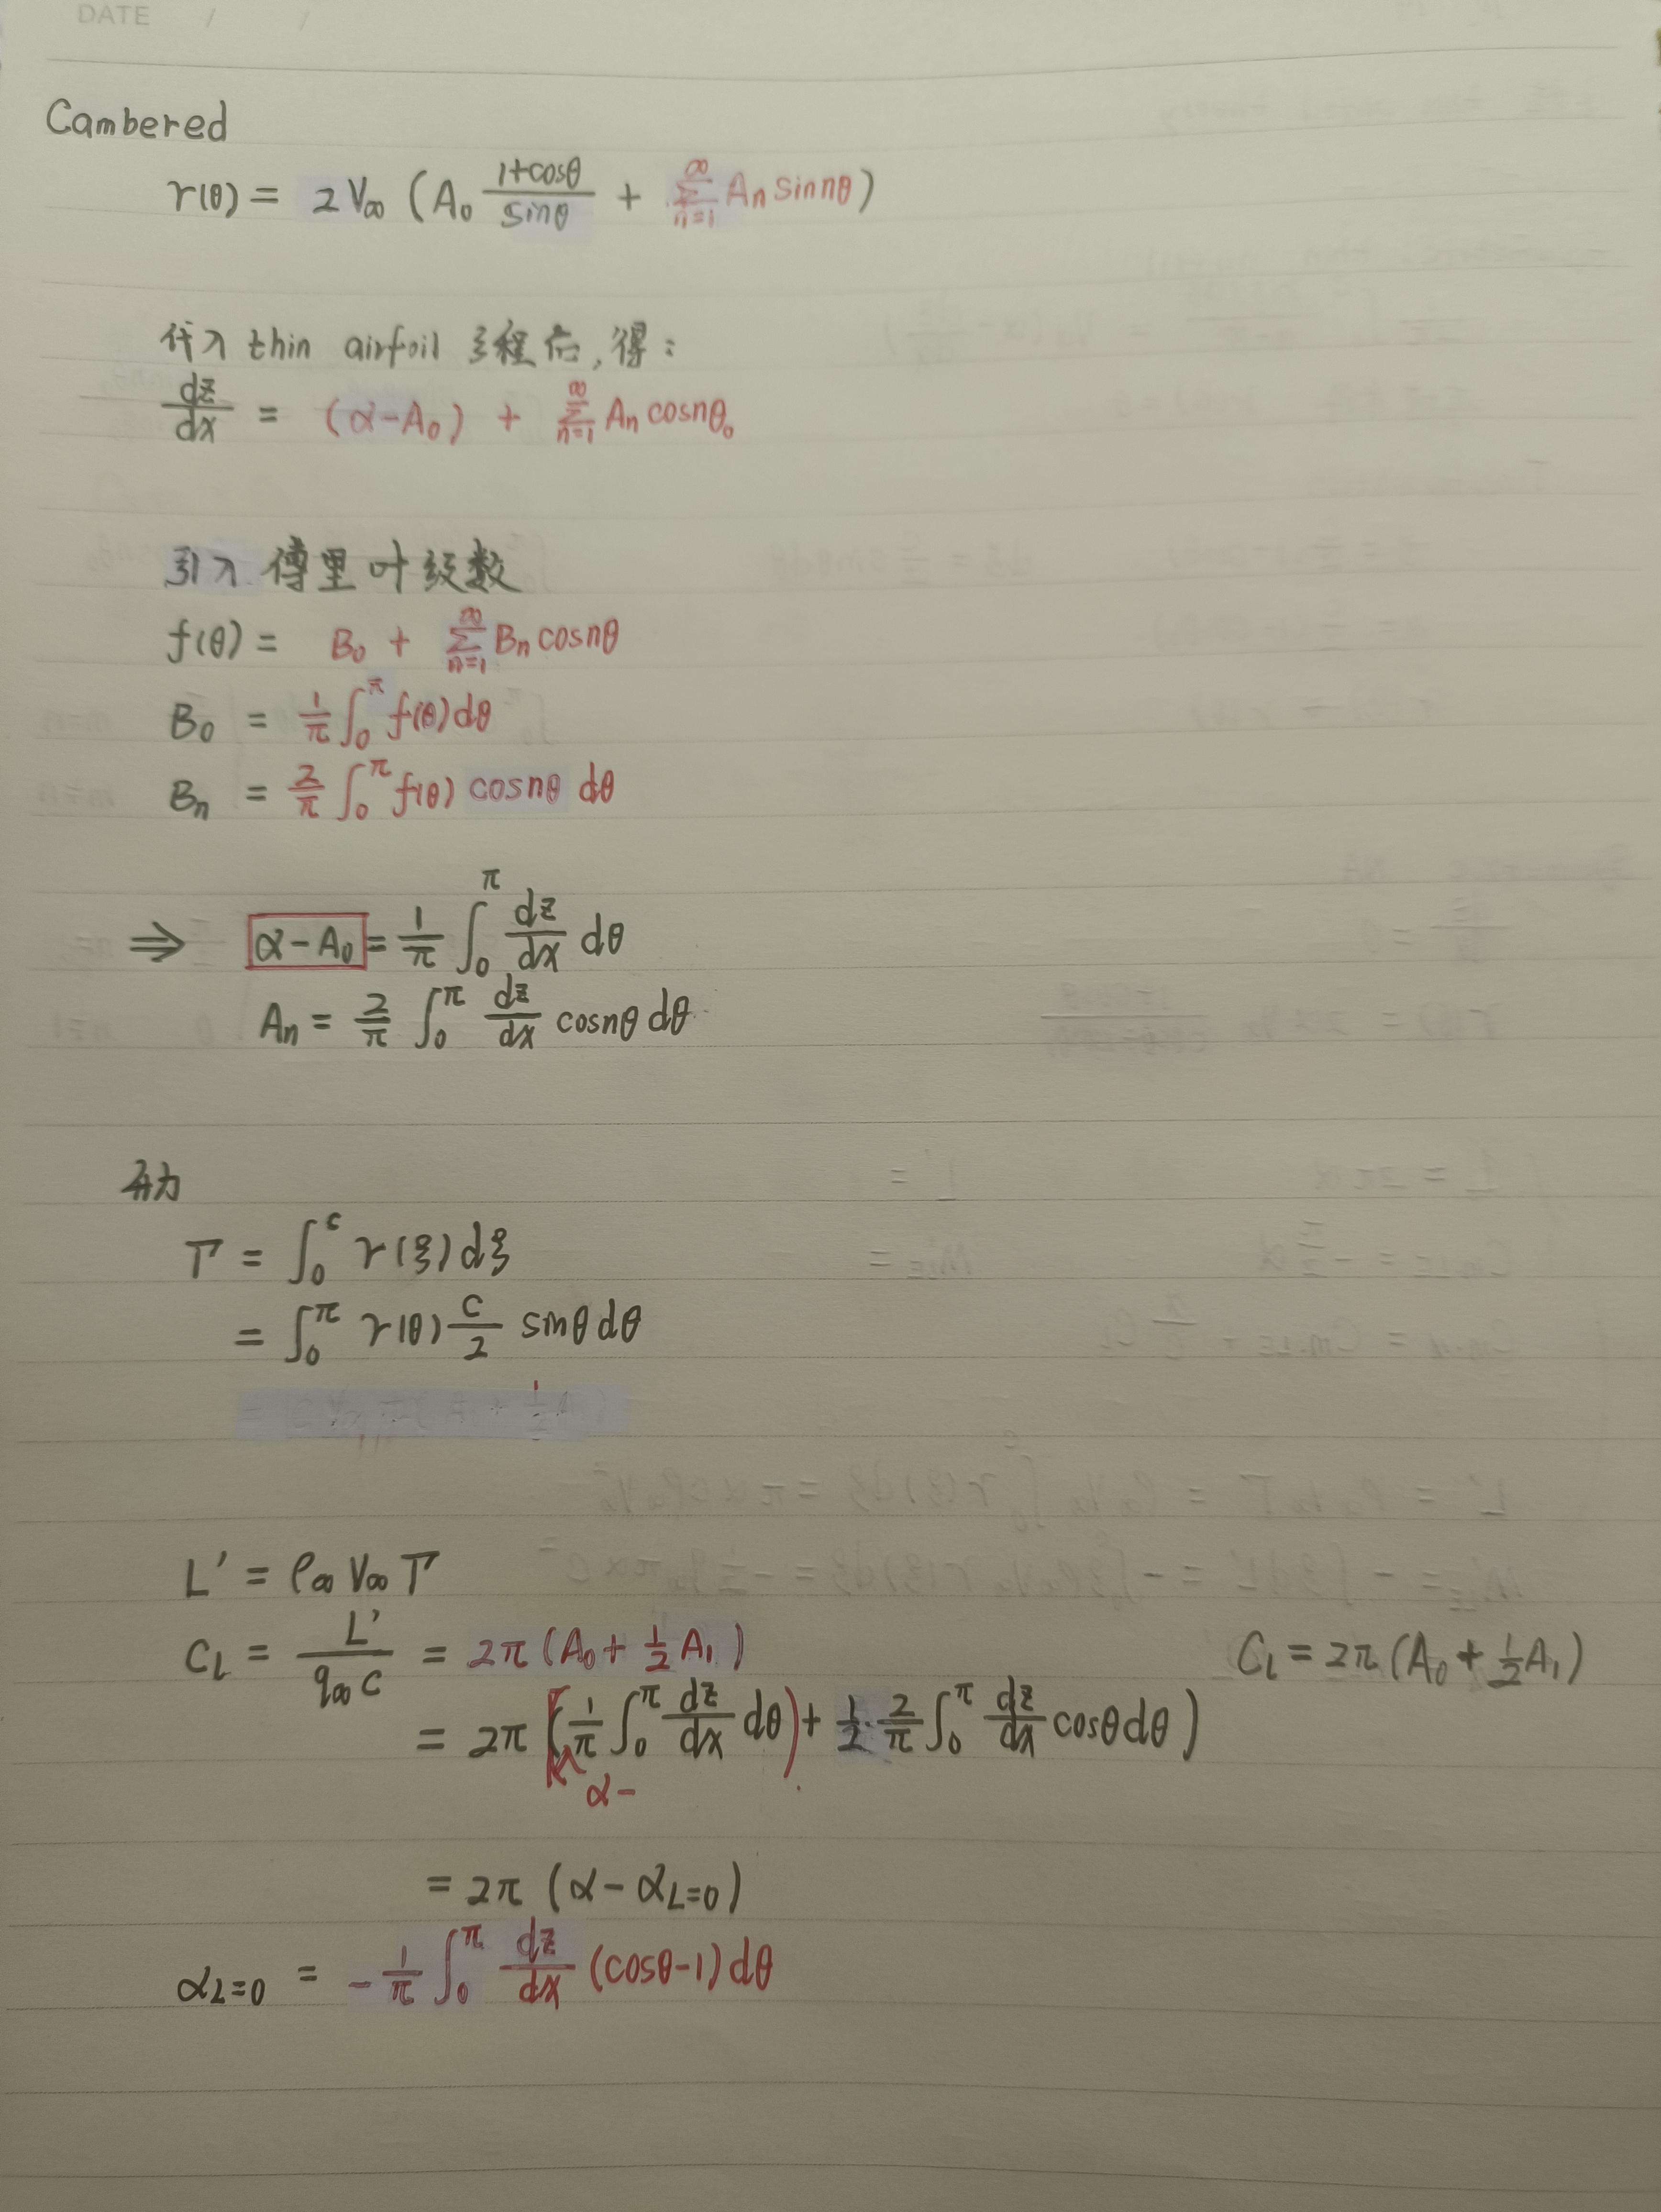 DATE / /
Cambered
r(θ) = 2V∞ (A₀ (1+cosθ)/sinθ + Σ_{n=1}^{∞} An sin nθ)
代入 thin airfoil 方程后,得:
dz/dx = (α-A₀) + Σ_{n=1}^{∞} An cosnθ₀
引入 傅里叶级数
f(θ) = B₀ + Σ_{n=1}^{∞} Bn cosnθ
B₀ = 1/π ∫₀^π f(θ)dθ
Bn = 2/π ∫₀^π f(θ) cosnθ dθ
⇒ α-A₀ = 1/π ∫₀^π dz/dx dθ
An = 2/π ∫₀^π dz/dx cosnθ dθ
Γ = ∫₀^c r(ξ)dξ
= ∫₀^π r(θ) c/2 sinθdθ
L' = ρ∞ V∞ Γ
CL = L'/(q∞ c) = 2π(A₀ + 1/2 A₁)
CL = 2π(A₀ + 1/2 A₁)
= 2π (1/π ∫₀^π dz/dx dθ) + 1/2 · 2/π ∫₀^π dz/dx cosθdθ)
α-
= 2π (α - αL=0)
αL=0 = -1/π ∫₀^π dz/dx (cosθ-1)dθ